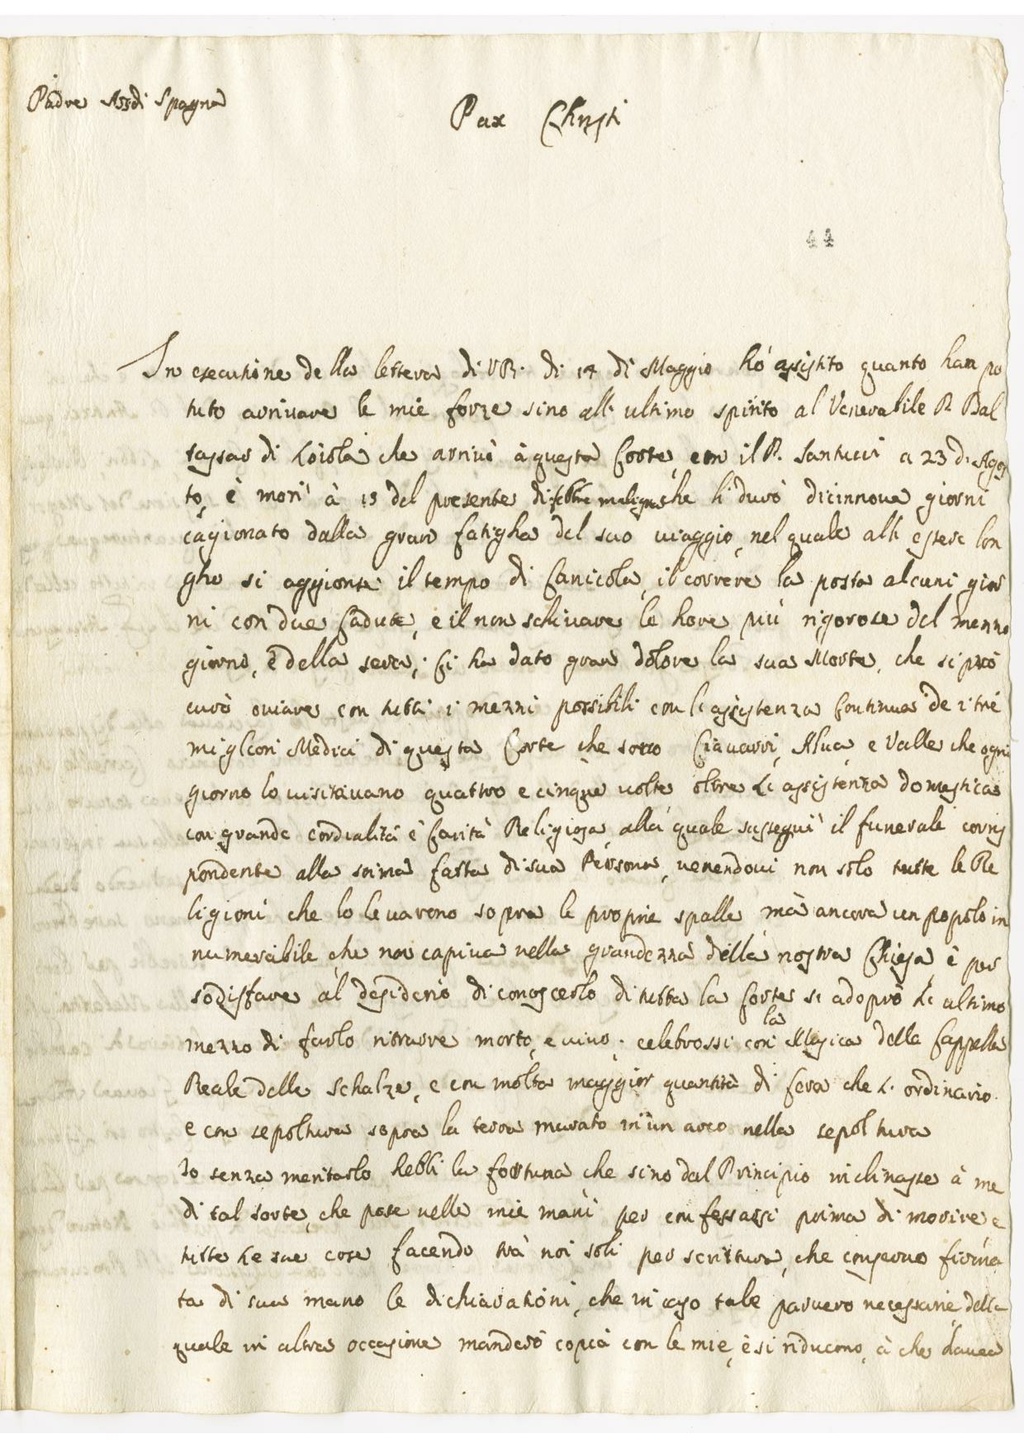 Padre Assdi Spagna
Pax Christi
44
In executione della lettera di VR. di 14 di Maggio hò assistito quanto han po
tuto arrivare le mie forze sino all' ultimo spirito al Venerabile P. Bal
tassar di Loiola che arrivò à questa Corte con il P. Santucci a 23 di Agos
to, è morì à 15 del presente di febbre maligna che li durò dicinnove giorni
cagionato dalla gran fatigha del suo viaggio, nel quale all' essere lon
gho si aggionse il tempo di Canicola, il correre la posta alcuni gior
ni con due cadute, e il non schivare le hore più rigorose del mezzo
giorno, è della sera; Ci ha dato gran dolore la sua Morte, che si pro
curò oviare con tutti i mezzi possibili con l'assistenza Continua de i tré
migliori Medici di questa Corte che sono Ciavarri, Alua, e Valle che ogni
giorno lo visitavano quattro e cinque volte oltre l'assistenza domestica
con grande cordialità è Carità Religiosa, alla quale susseguì il funerale corris
pondente alla stima fatta di sua Persona, venendovi non solo tutte le Re
ligioni che lo levarono sopra le proprie spalle mà ancora un popolo in
numerabile che non capiva nella grandezza della nostra Chiesa è per
sodisfare al desiderio di conoscerlo di tutta la Corte si adoprò l'ultimo
mezzo di farlo ritrarre morto, e vivo. celebrossi con la Musica della Cappella
Reale delle Schalze, e con molta maggior quantità di cera che l'ordinario.
e con sepoltura sopra la terra murato in un arco nella sepoltura
Io senza meritarlo hebbi la fortuna che sino dal Principio inclinasse à me
di tal sorte, che pose nelle mie mani per confessarsi prima di morire e
tutte le sue cose facendo trà noi soli per scrittura, che conservo firma
ta di sua mano le dichiarationi, che in caso tale parvero necessarie, della
quale in altra occasione manderò copia con le mie, è si riducono, à che havea